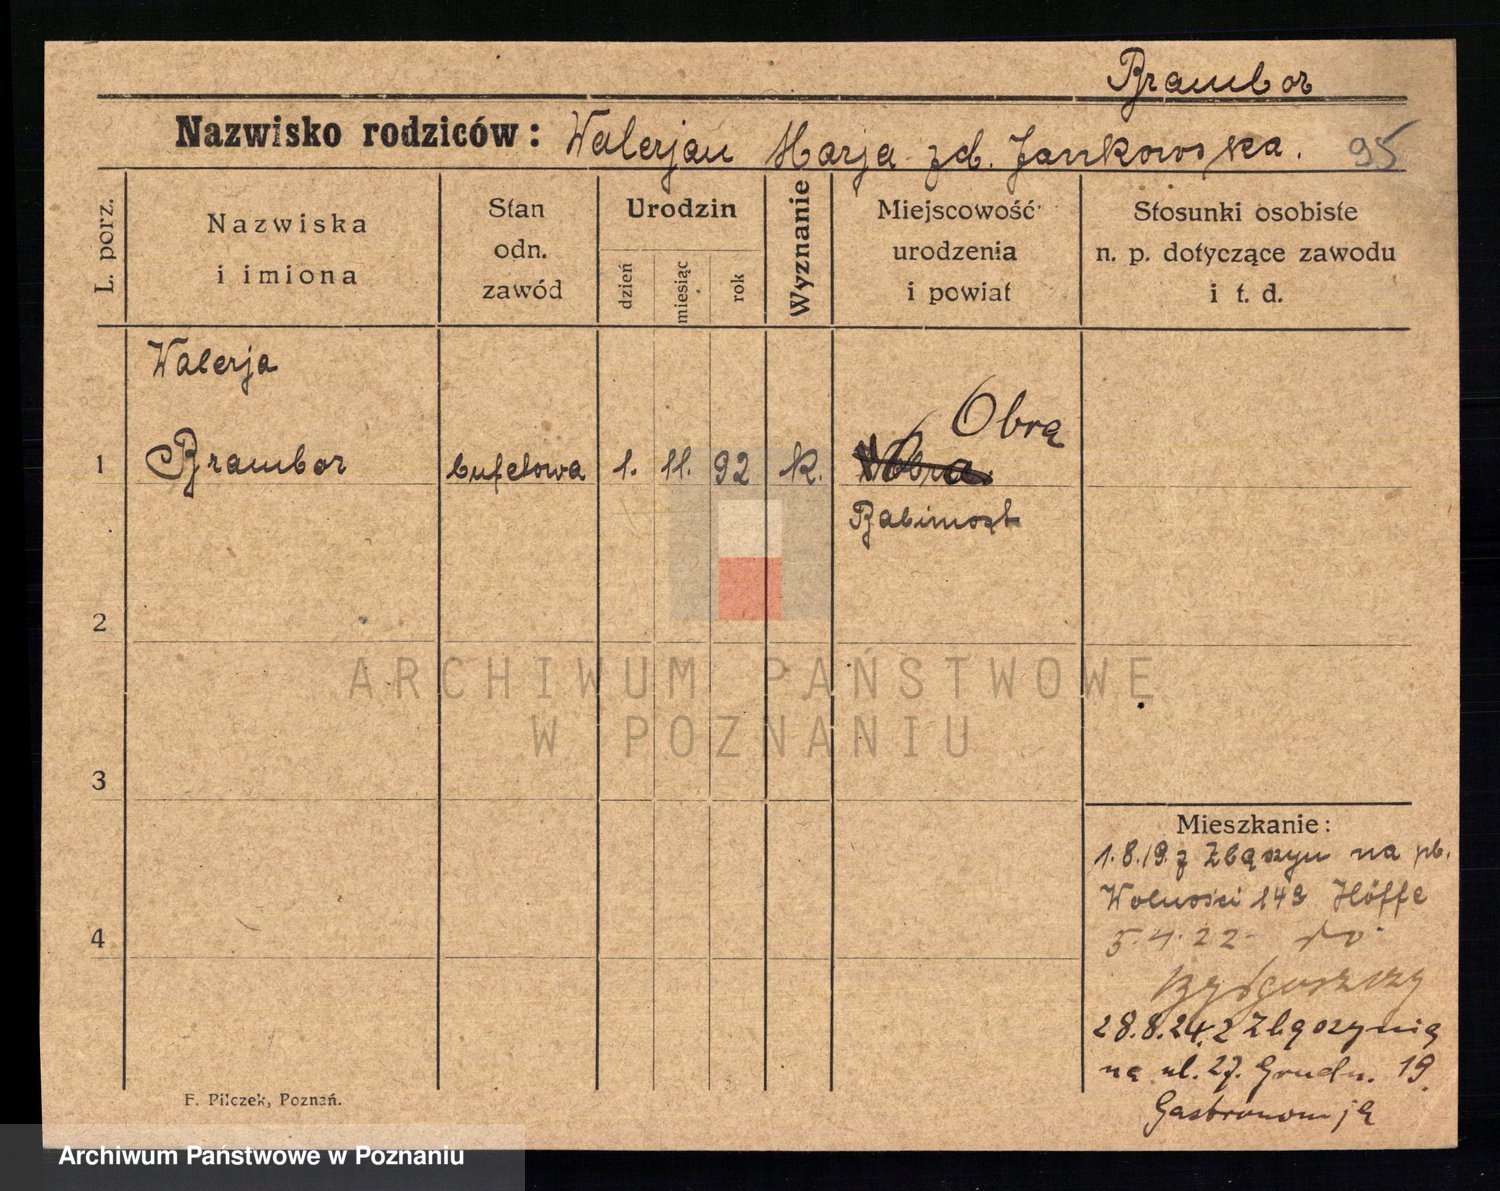 Brambor
Nazwisko rodziców: Walerjan Marja zd. Jankowska. 95
L. porz.
Nazwiska
i imiona
Stan
odn.
zawód
Urodzin
dzień
miesiąc
rok
Wyznanie
Miejscowość
urodzenia
i powiat
Stosunki osobiste
n. p. dotyczące zawodu
i t. d.
Walerja
Obrą
1 Brambor bufetowa 1. 11. 92 k. Obra.
Babimost
2
3
4
ARCHIWUM PAŃSTWOWE
W POZNANIU
Mieszkanie:
1.8.19. z Zbąszyn na pl.
Wolności 149 Höffe
5.4.22. do
Bydgoszczy
28.8.24. z Zbąszynia
na ul. 27. Grudn. 19.
Gastronomją
F. Pilczek, Poznań.
Archiwum Państwowe w Poznaniu